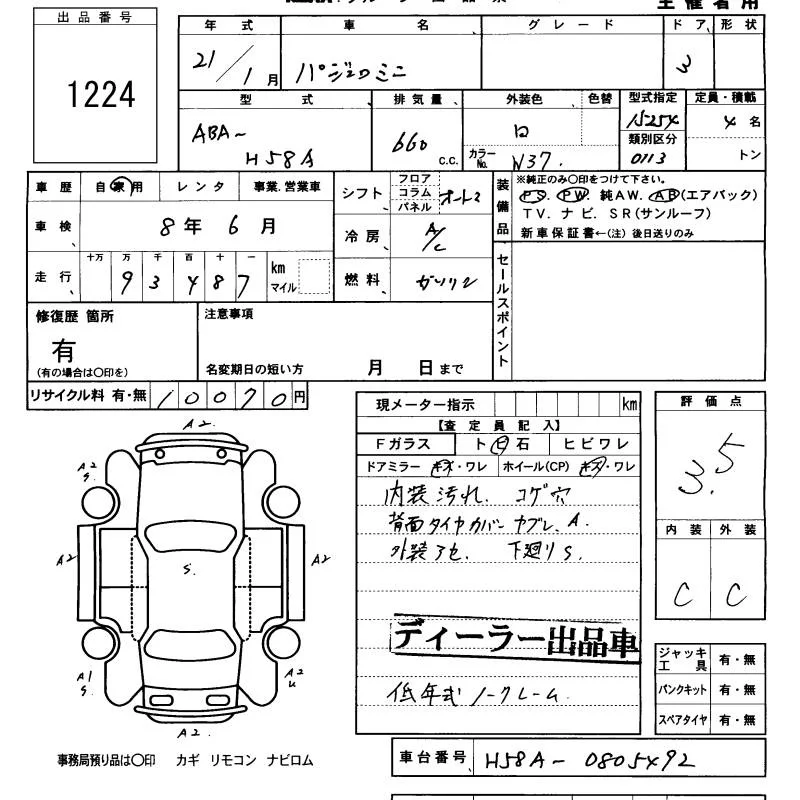 出品番号
1224
年式 車名 グレード ドア 形状
21/1月 パジェロミニ 3
型式 排気量 外装色 色替 型式指定 定員・積載
ABA-H58A 660 C.C. カラーNo. W37. 類別区分 0113 4名 トン
車歴 自家用 レンタ 事業.営業車
車検 8年6月
走行 十万 万 千 百 十 一
93487 km マイル
シフト フロア コラム パネル オートマ
冷房 A/C
燃料 ガソリン
装備品 ※純正のみ〇印をつけて下さい。
PS. PW. 純AW. AB(エアバック)
TV. ナビ. SR(サンルーフ)
新車保証書←(注) 後日送りのみ
セールスポイント
修復歴 箇所
有
(有の場合は〇印を)
注意事項
名変期日の短い方 月 日まで
リサイクル料 有・無 10070円
現メーター指示 km
【査定員記入】
Fガラス トビ石 ヒビワレ
ドアミラー キズ・ワレ ホイール(CP) キズ・ワレ
内装汚れ. コゲ穴
背面タイヤカバーヤブレ. A.
外装アセ 下廻りS.
ディーラー出品車
低年式ノークレーム
評価点
3.5
内装 外装
C C
ジャッキ工具 有・無
パンクキット 有・無
スペアタイヤ 有・無
A2.
A2 S.
A2
A2
S.
A1 S
A2 U
A2.
事務局預り品は〇印 カギ リモコン ナビロム
車台番号 H58A-0805492